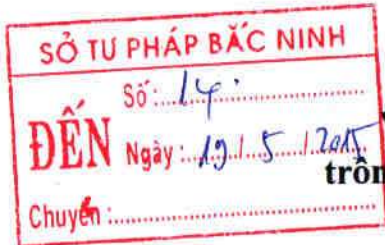 SỞ TƯ PHÁP BẮC NINH
ĐẾN
Số: 14.
Ngày: 19 / 5 / 2015
Chuyển:
trôn